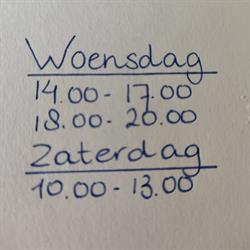 Woensdag
14.00 - 17.00
18.00 - 20.00
Zaterdag
10.00 - 13.00